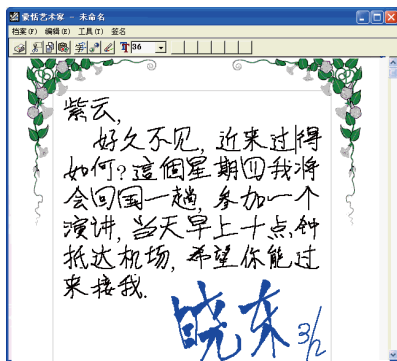 蒙恬艺术家 - 未命名
档案(F) 编辑(E) 工具(T) 签名
36
紫云,
好久不见, 近来过得
如何?這個星期四我将
会回国一趟, 参加一个
演讲, 当天早上十点钟
抵达机场, 希望你能过
来接我.
晓东 3/2